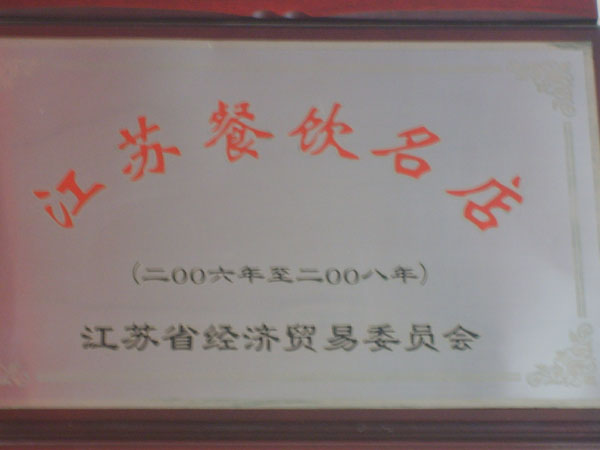 江苏餐饮名店
(二00六年至二00八年)
江苏省经济贸易委员会